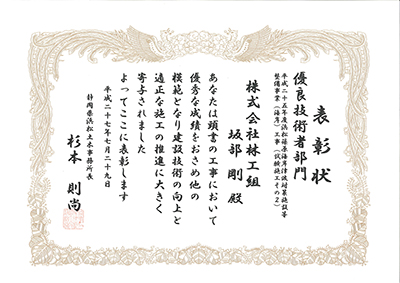 表彰状
優良技術者部門
平成二十五年度浜松篠原海岸津波対策施設等
整備事業(海岸)工事(試験施工その2)
株式会社林工組
坂部 剛 殿
あなたは頭書の工事において
優秀な成績をおさめ他の
模範となり建設技術の向上と
適正な施工の推進に大きく
寄与されました
よってここに表彰します
平成二十七年七月二十九日
静岡県浜松土木事務所長
杉本 則尚